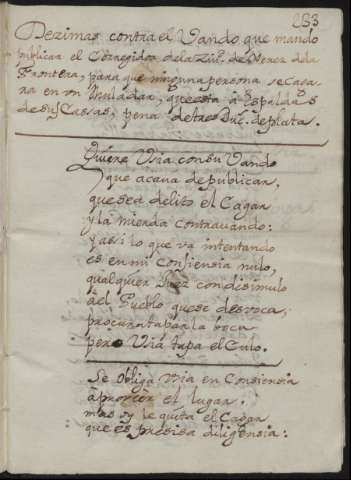 283
Dezimas contra el Vando que mando
publicar el Corregidor dela Ziud. de Xerez dela
Frontera, para que ninguna persona se caga-
ra en un Muladar, que esta à espaldas
de sus Cassas, pena de tres Duc. de plata.
Quiere Vsia con su Vando
que acava de publicar,
que sea delito el Cagar
y la mierda contravando:
y assi lo que va intentando
es en mi consiensia nulo,
qualquier Juez con disimulo
àel Pueblo que se desvoca,
procura tapar la boca
pero Vsia tapa el Culo.
Se obliga Vsia en Consiensia
a proveer el lugar.
mas oy le quita el Cagar
que es presisa diligensia: